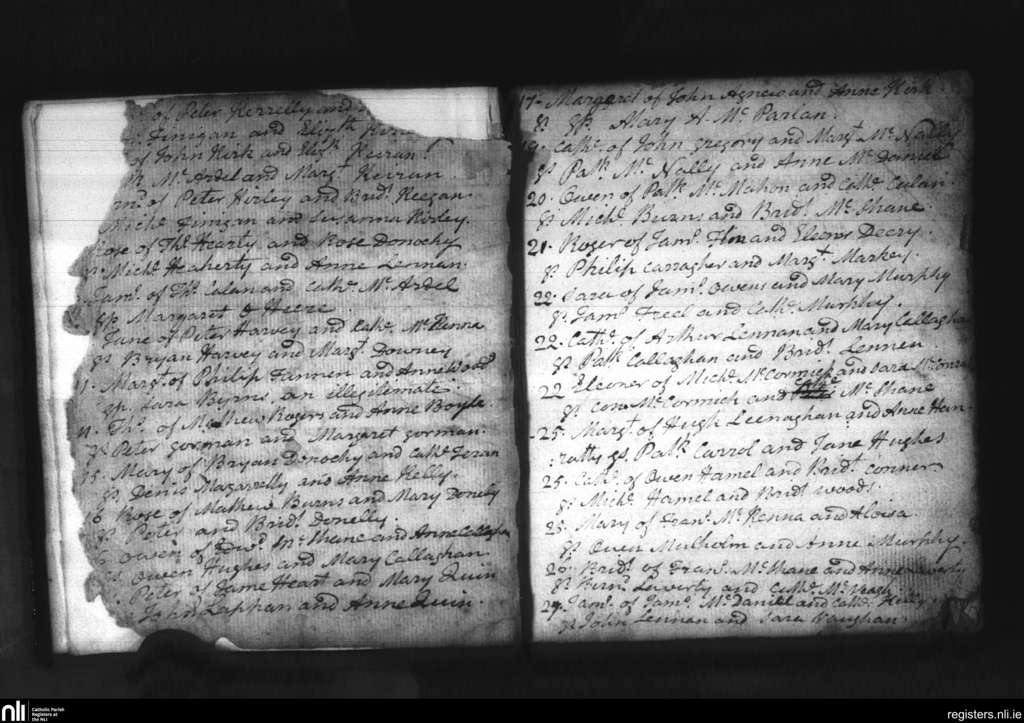 of Peter Kerrelly and
Finigan and Elizth Kera
of John Kirk and Elizh Keiran
Mc Ardel and Margt Keiran
of Peter Kirley and Bridt Keegan
Michl Finigan and Susanna Kirley
Rose of Ths Hearty and Rose Donochy
Michl Heherty and Anne Lennan
Jams of Ths Calan and Cathe Mc Ardel
gp Margaret O Heere
Jane of Peter Harvey and Cathe Mc Kenna
gs Bryan Harvey and Margt Downey
11. Margt of Philip Fannen and Anne Wood
gp. Sara Byrns an illegitimate
11. Ths of Mathew Rogers and Anne Boyle
gs Peter Gorman and Margaret Gorman
15. Mary of Bryan Donochy and Cathe
gs Denis Magarrelly and Anne Kelly
6 Rose of Mathew Burns and Mary Donely
gs Peter and Bridt Donelly
Owen of Edwd Mc Shane and Anne Callaghan
Owen Hughes and Mary Callaghan
Peter of Jame Heart and Mary Quin
John Laphan and Anne Quin
17. Margaret of John Agnew and Anne Kirk
gs Mary A Mc Parlan
19. Cathe of John Gregory and Margt Mc Nally
gs Patk Mc Nally and Anne Mc Daniel
20. Owen of Patk Mc Mahon and Cathe Culan
gs Michl Burns and Bridt Mc Shane
21. Roger of Jams and Eleonr Deery
gs Philip Carragher and Margt Markey
22. Sara of Jams Owens and Mary Murphy
gs Jams Freel and Cathe Murphy
22. Cathe of Arthur Lennan and Mary Callaghan
gs Patk Callaghan and Bridt Lennen
22 Eleoner of Michl Mc Cormick and Sara Mc
gs Con Mc Cormick and Mc Shane
25. Margt of Hugh Leenaghan and Anne Han-
ratty gs. Patk Carrol and Jane Hughes
25. Cathe of Owen Hamel and Bridt Conner
gs Michl Hamel and Bridt Woods
25. Mary of Frans Mc Kenna and Aloisa
gs Owen Mulholm and Anne Murphy
Bridt of Frans Mc Shane and Anne Laverty
gs Laverty and Cathe
29. Jams of Jams Mc Daniel and Cathe Kelly
gs John Lennan and Sara Vaughan
nli
Catholic Parish
Registers at
the NLI
registers.nli.ie